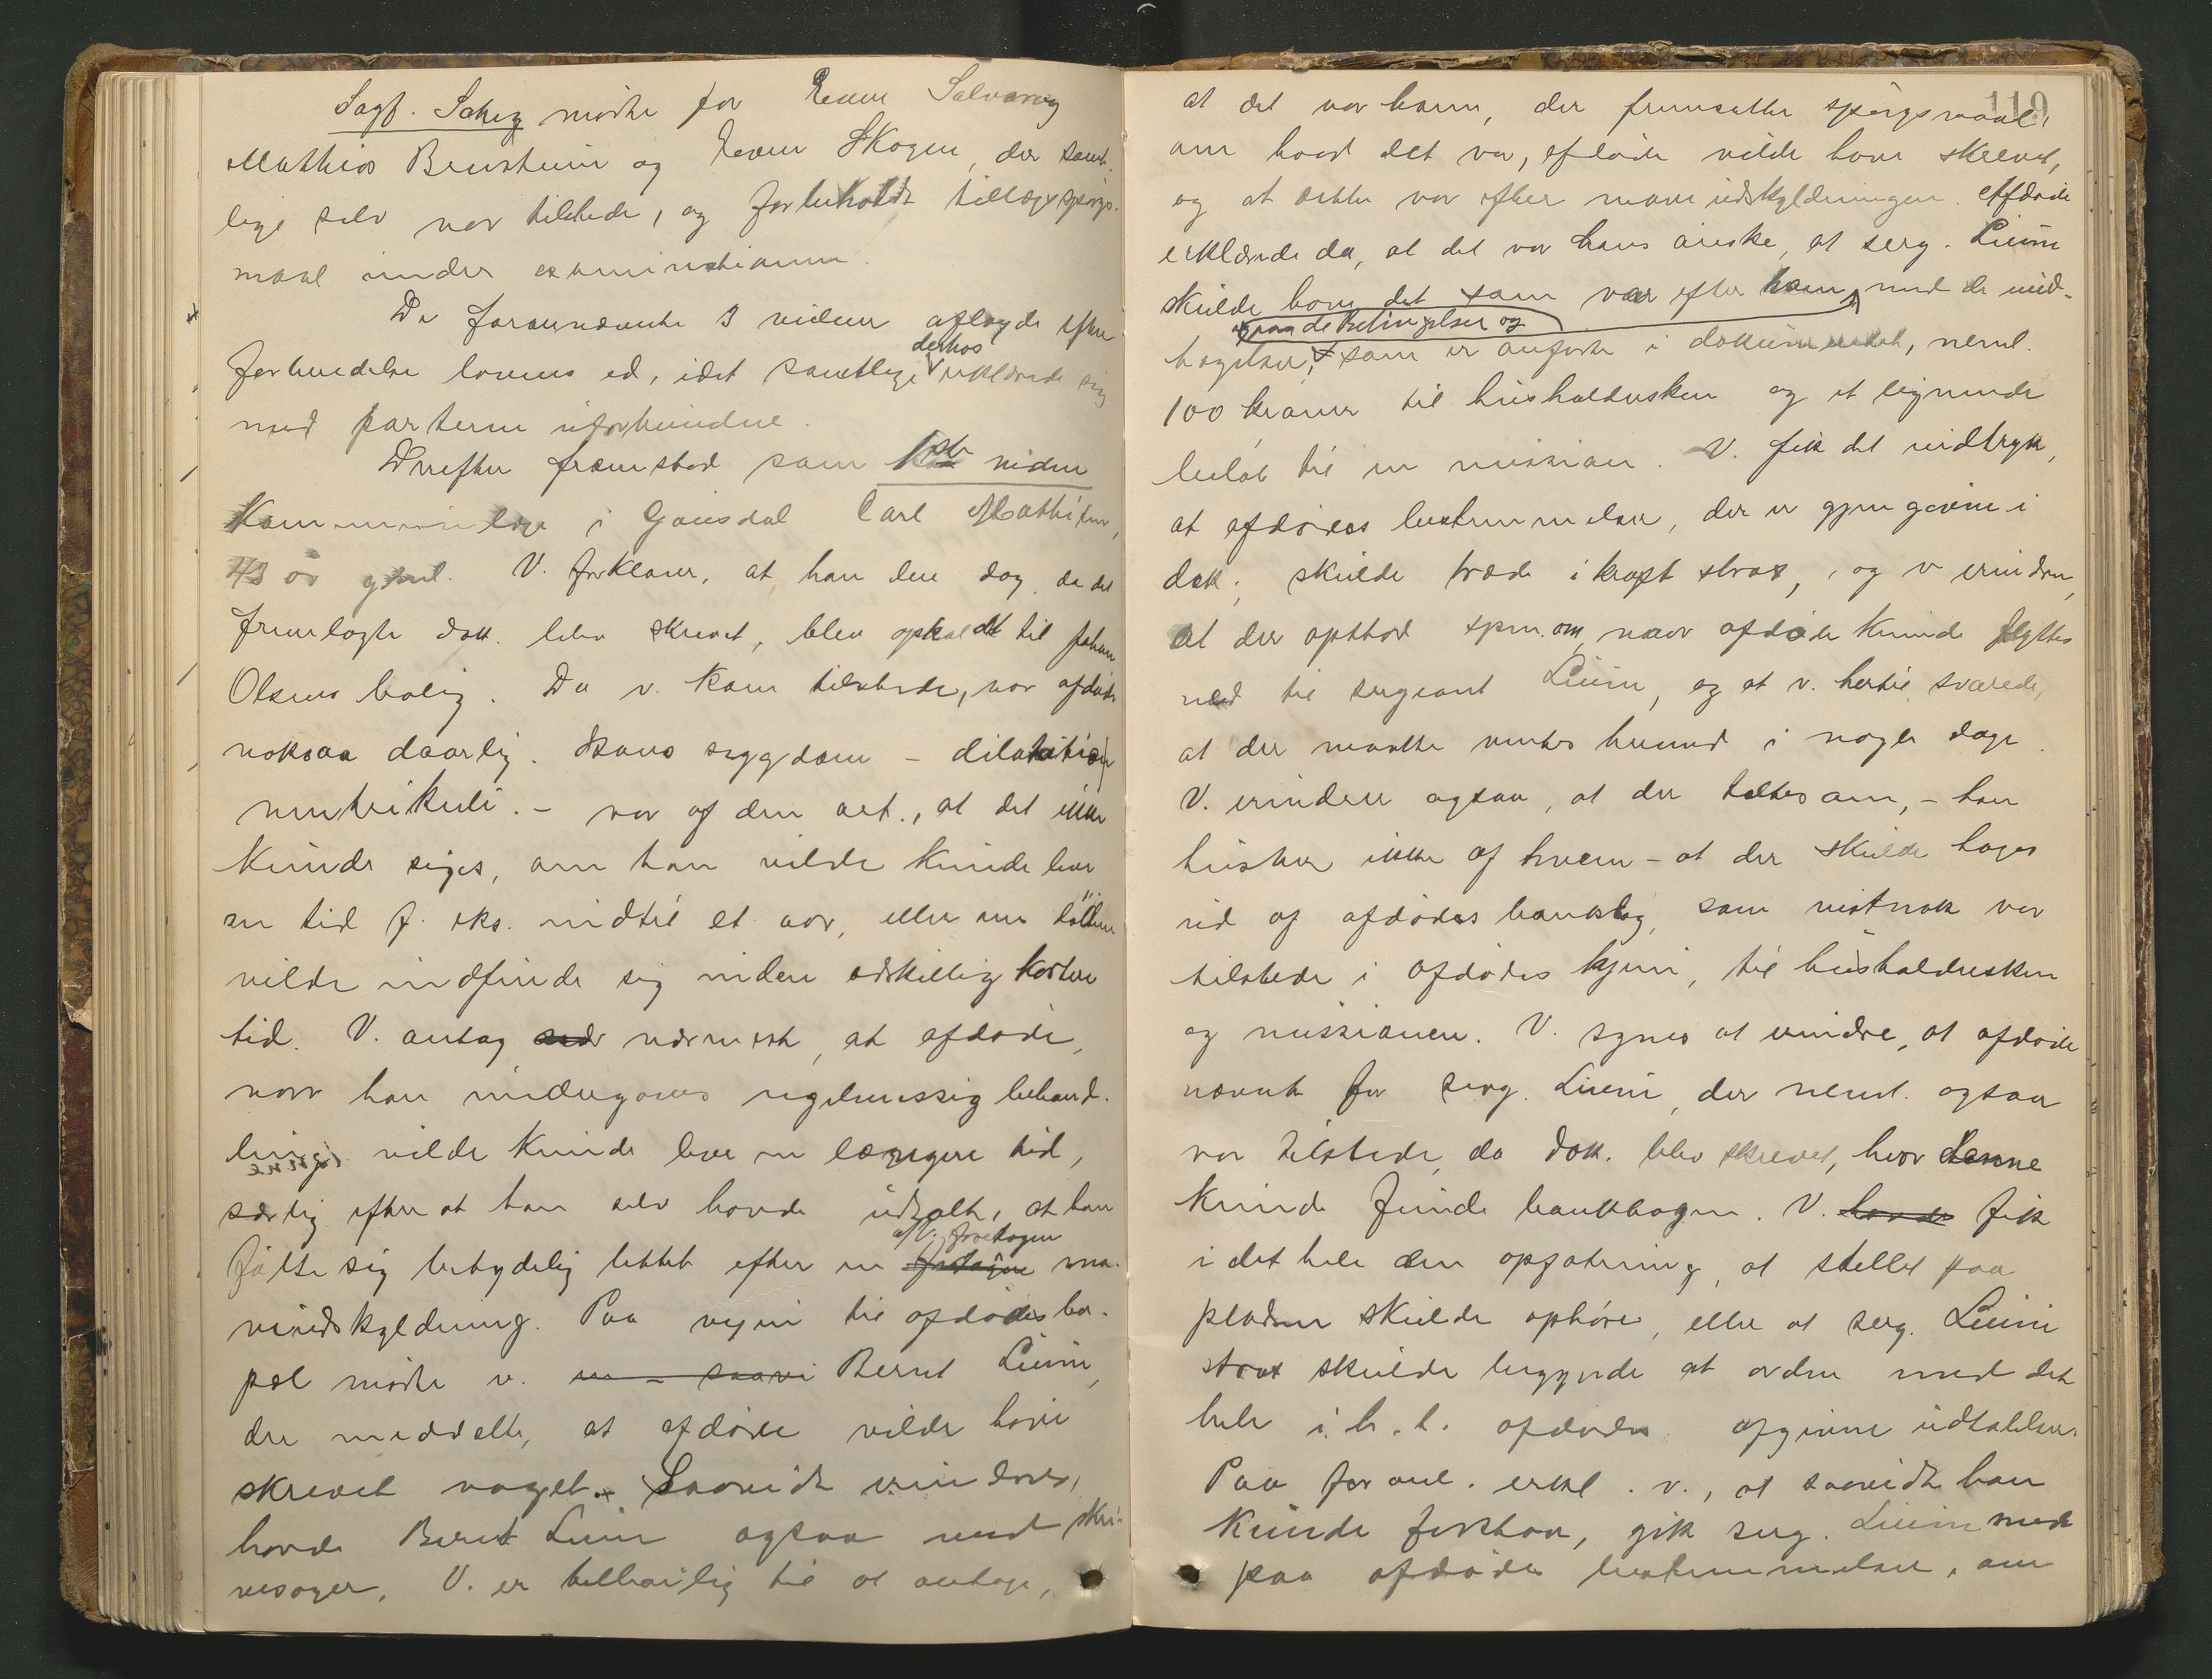 Sagf. Scheig mødte for Even Salvaray
Mathias Brusheim og Even Skogen, der samt-
lige selv var tilstede, og forbeholdt tillægsspörgs-
maal under examinationen.
De forannævnte 3 vidner aflagde efter
forhuedelse lovens ed, idet samtlige derhos erklærede sig
med parterne uforbundne.
Derefter fremstod som 1ste vidne
Kommunelæge i Gausdal Carl Mathisen,
43 aar gml. V. forklarer, at han den dag, da det
fremlagte dok. blev skrevet, blev opkaldt til Johan
Olsens bolig. Da v. kom tilstede, var afdøde
noksaa daarlig. Hans sygdom – dilatatio
ventrikuli. – var af den art, at det ikke
kunde siges, om han vilde kunde leve
en tid f. eks. indtil et aar, eller om döden
vilde indfinde sig inden adskillig kortere
tid. V. antog nærmest, at afdøde,
naar han undergaves regelmæssig behand-
ling vilde kunde leve en længere tid,
særlig efter at han selv havde udtalt, at han
følte sig betydelig lettet efter en af V. foretagen ma-
veudskyldning. Paa veien til afdødes bo-
pæl mødte v. Bernt Liium,
der meddelte, at afdøde vilde have
skrevet noget. Saavidt erindres,
havde Bernt Liium ogsaa med skri-
vesager. V. er tilbøielig til at antage,
119
at det var ham, der fremsatte spörgsmaal,
om hvad det var, afdøde vilde have skrevet,
og at dette var efter maveudskyldningen. Afdøde
erklærede da, at det var hans önske, at serg. Liium
skulde have det som var efter ham, med de und-
tagelser, paa de betingelser og som er anførte i dokumentet, neml.
100 kroner til husholdersken og et lignende
beløb til en mission. V. fik det indtryk,
at afdødes bestemmelser, der er gjengivne i
dok. skulde træde i kraft strax, og v erindrer,
at der opstod spm. om, naar afdøde kunde flyttes
ned til sergeant Liium, og at v. hertil svarede,
at der maatte ventes hermed i nogle dage.
V. erindrer ogsaa, at der taltes om, – han
husker ikke af hvem – at der skulde tages
ud af afdødes bankbog, som vistnok var
tilstede i afdødes hjem, til husholdersken
og missionen. V. synes at erindre, at afdøde
nævnte for serg. Liium, der neml. ogsaa
var tilstede, da dok. blev skrevet, hvor denne
kunde finde bankbogen. V. havde fik
i det hele den opfatning, at stellet paa
pladsen skulde ophøre, eller at serg. Liium
strax skulde begynde at ordne med det
hele i. h. t. afdødes afgivne udtalelser.
Paa foranl. erkl. v., at saavidt han
kunde forstaa, gik serg. Liium med
paa afdødes bestemmelser, om